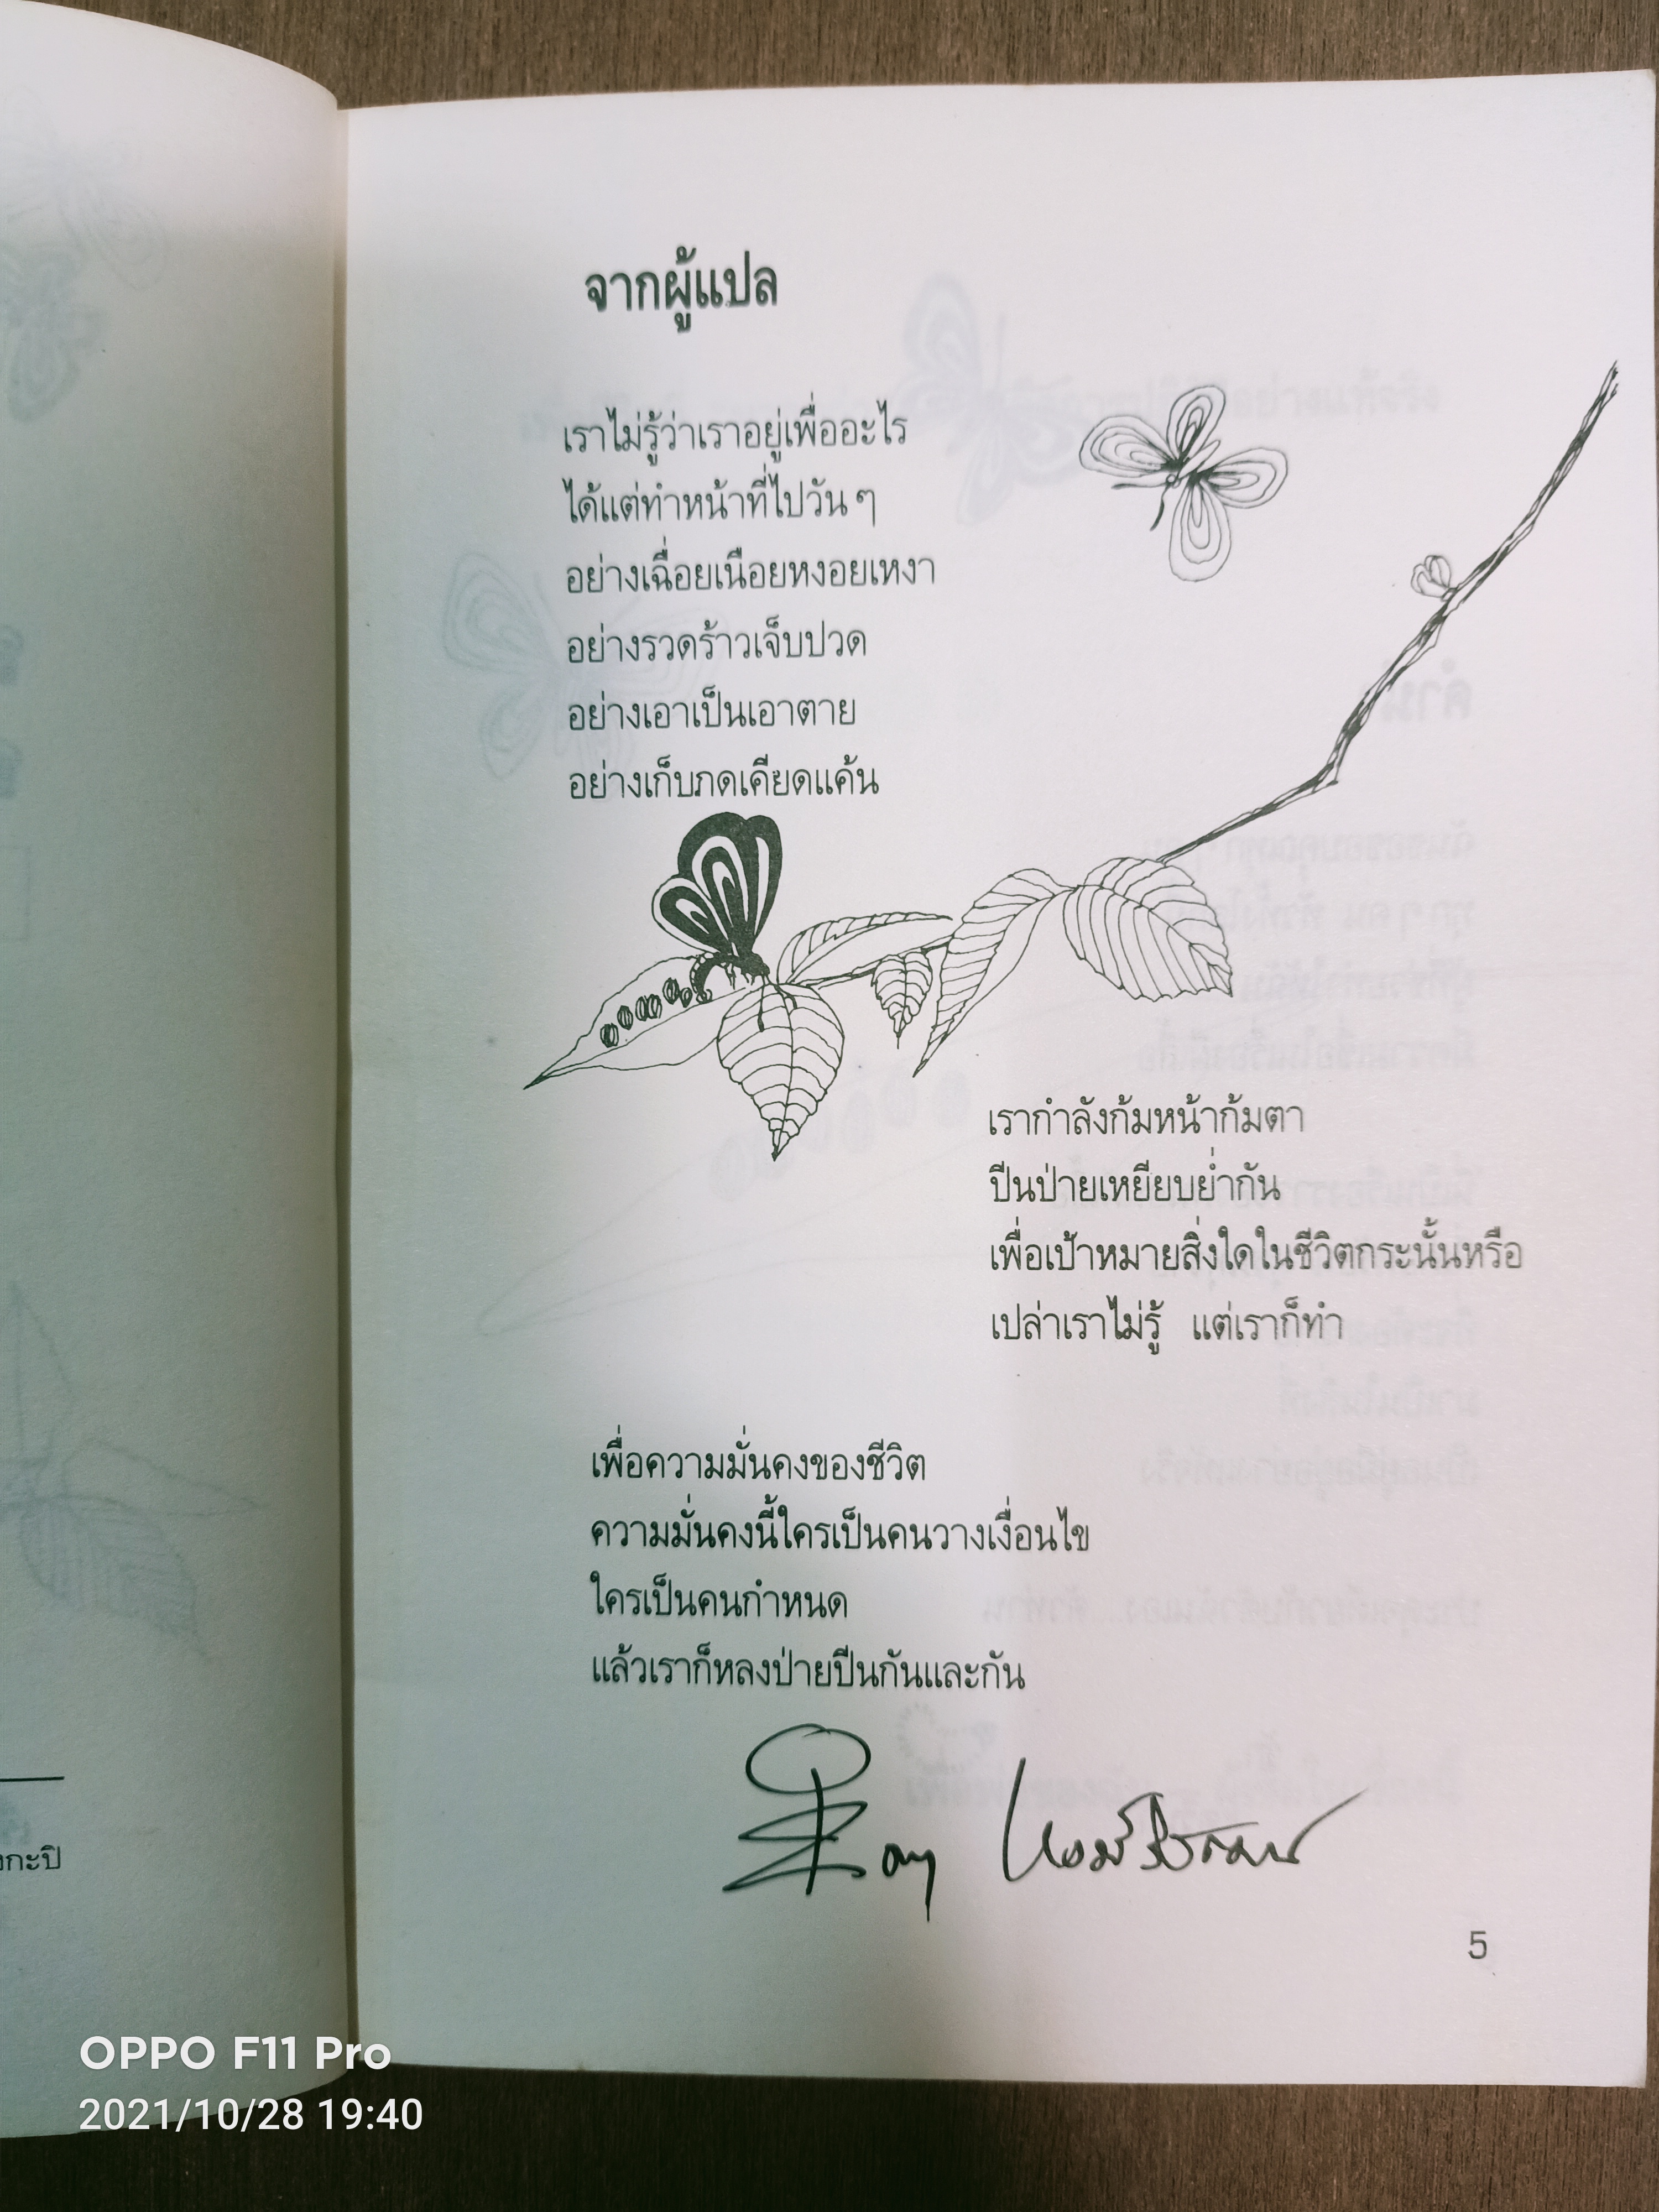 จากผู้แปล
เราไม่รู้ว่าเราอยู่เพื่ออะไร
ได้แต่ทำหน้าที่ไปวัน ๆ
อย่างเฉื่อยเนือยหงอยเหงา
อย่างรวดร้าวเจ็บปวด
อย่างเอาเป็นเอาตาย
อย่างเก็บกดเคียดแค้น
เรากำลังก้มหน้าก้มตา
ปีนป่ายเหยียบย่ำกัน
เพื่อเป้าหมายสิ่งใดในชีวิตกระนั้นหรือ
เปล่าเราไม่รู้ แต่เราก็ทำ
เพื่อความมั่นคงของชีวิต
ความมั่นคงนี้ใครเป็นคนวางเงื่อนไข
ใครเป็นคนกำหนด
แล้วเราก็หลงป่ายปีนกันและกัน
5
กะปิ
OPPO F11 Pro
2021/10/28 19:40